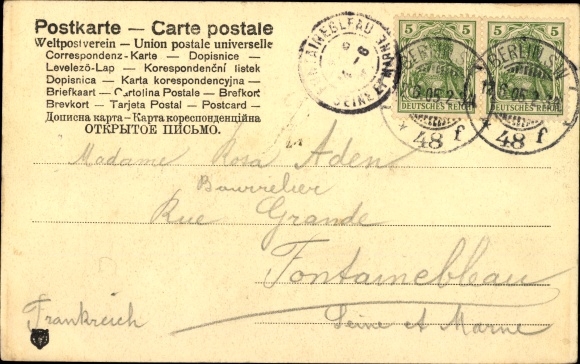 Postkarte — Carte postale
Weltpostverein — Union postale universelle
Correspondenz-Karte — Dopisnice —
Levelező-Lap — Korespondenční lístek
Dopisnica — Karta korespondencyjna —
Briefkaart — Cartolina Postale — Brefkort
Brevkort — Tarjeta Postal — Postcard —
Дописна карта — Карта кореспонденційна
ОТКРЫТОЕ ПИСЬМО.
FONTAINEBLEAU
SEINE ET MARNE
5 5 5 5
DEUTSCHES REICH DEUTSCHES REICH
BERLIN S.W. BERLIN S.W.
48 f 48 f
Madame Rosa Aden
Bourrelier
Rue Grande
Fontainebleau
Seine et Marne
Frankreich